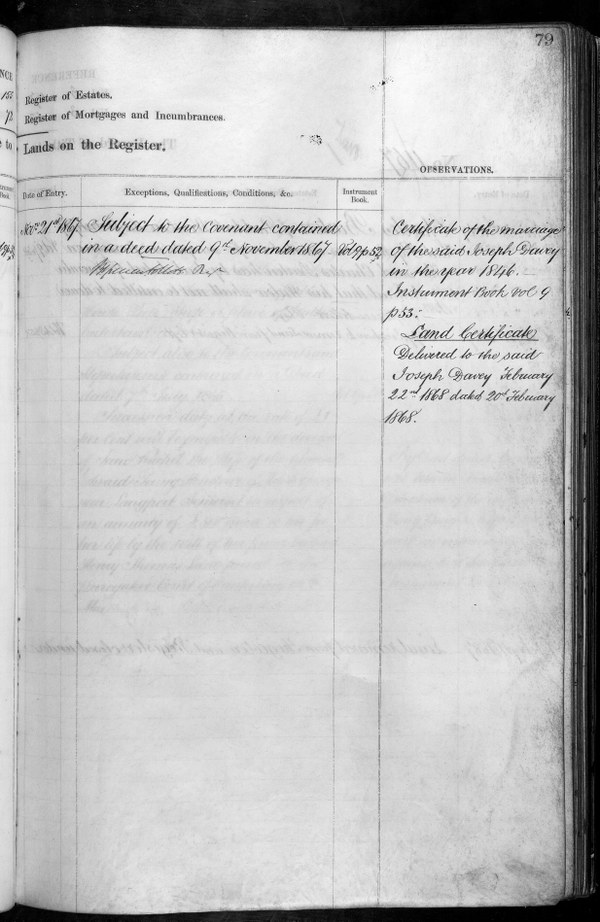 79
NCE
Register of Estates.
Register of Mortgages and Incumbrances.
Lands on the Register.
OBSERVATIONS.
Date of Entry.
Exceptions, Qualifications, Conditions, &c.
Instrument Book.
Novr. 21st 1867
Subject to the Covenant contained
in a deed dated 9th November 1867
Vol 9 p 52
Follett
Certificate of the marriage
of the said Joseph Davey
in the year 1846.
Instrument Book Vol 9
p 53:
Land Certificate
Delivered to the said
Joseph Davey February
22nd 1868 dated 20th February
1868.